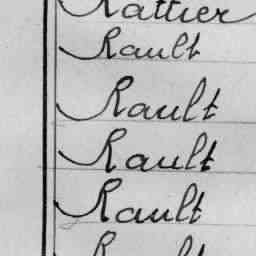 Rattier
Rault
Rault
Rault
Rault
Rault